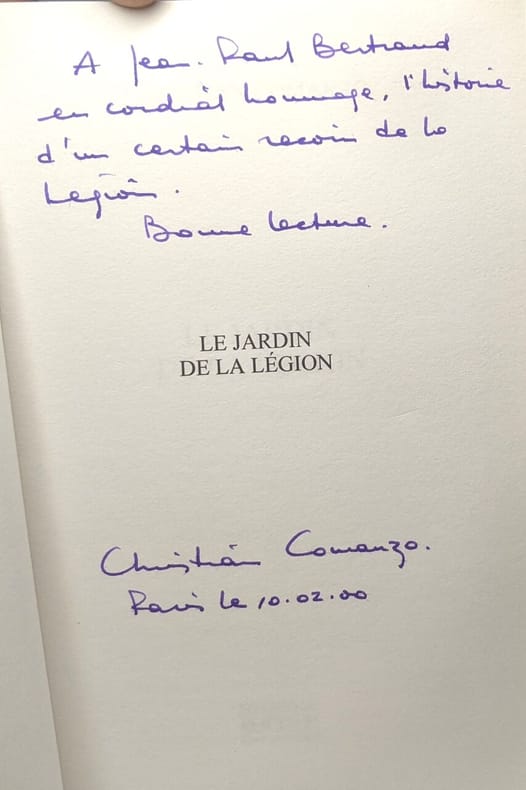 A Jean-Paul Bertrand
en cordial hommage, l'histoire
d'un certain recoin de la
Légion.
Bonne lecture.
LE JARDIN
DE LA LÉGION
Christian Comanzo.
Paris le 10.02.00